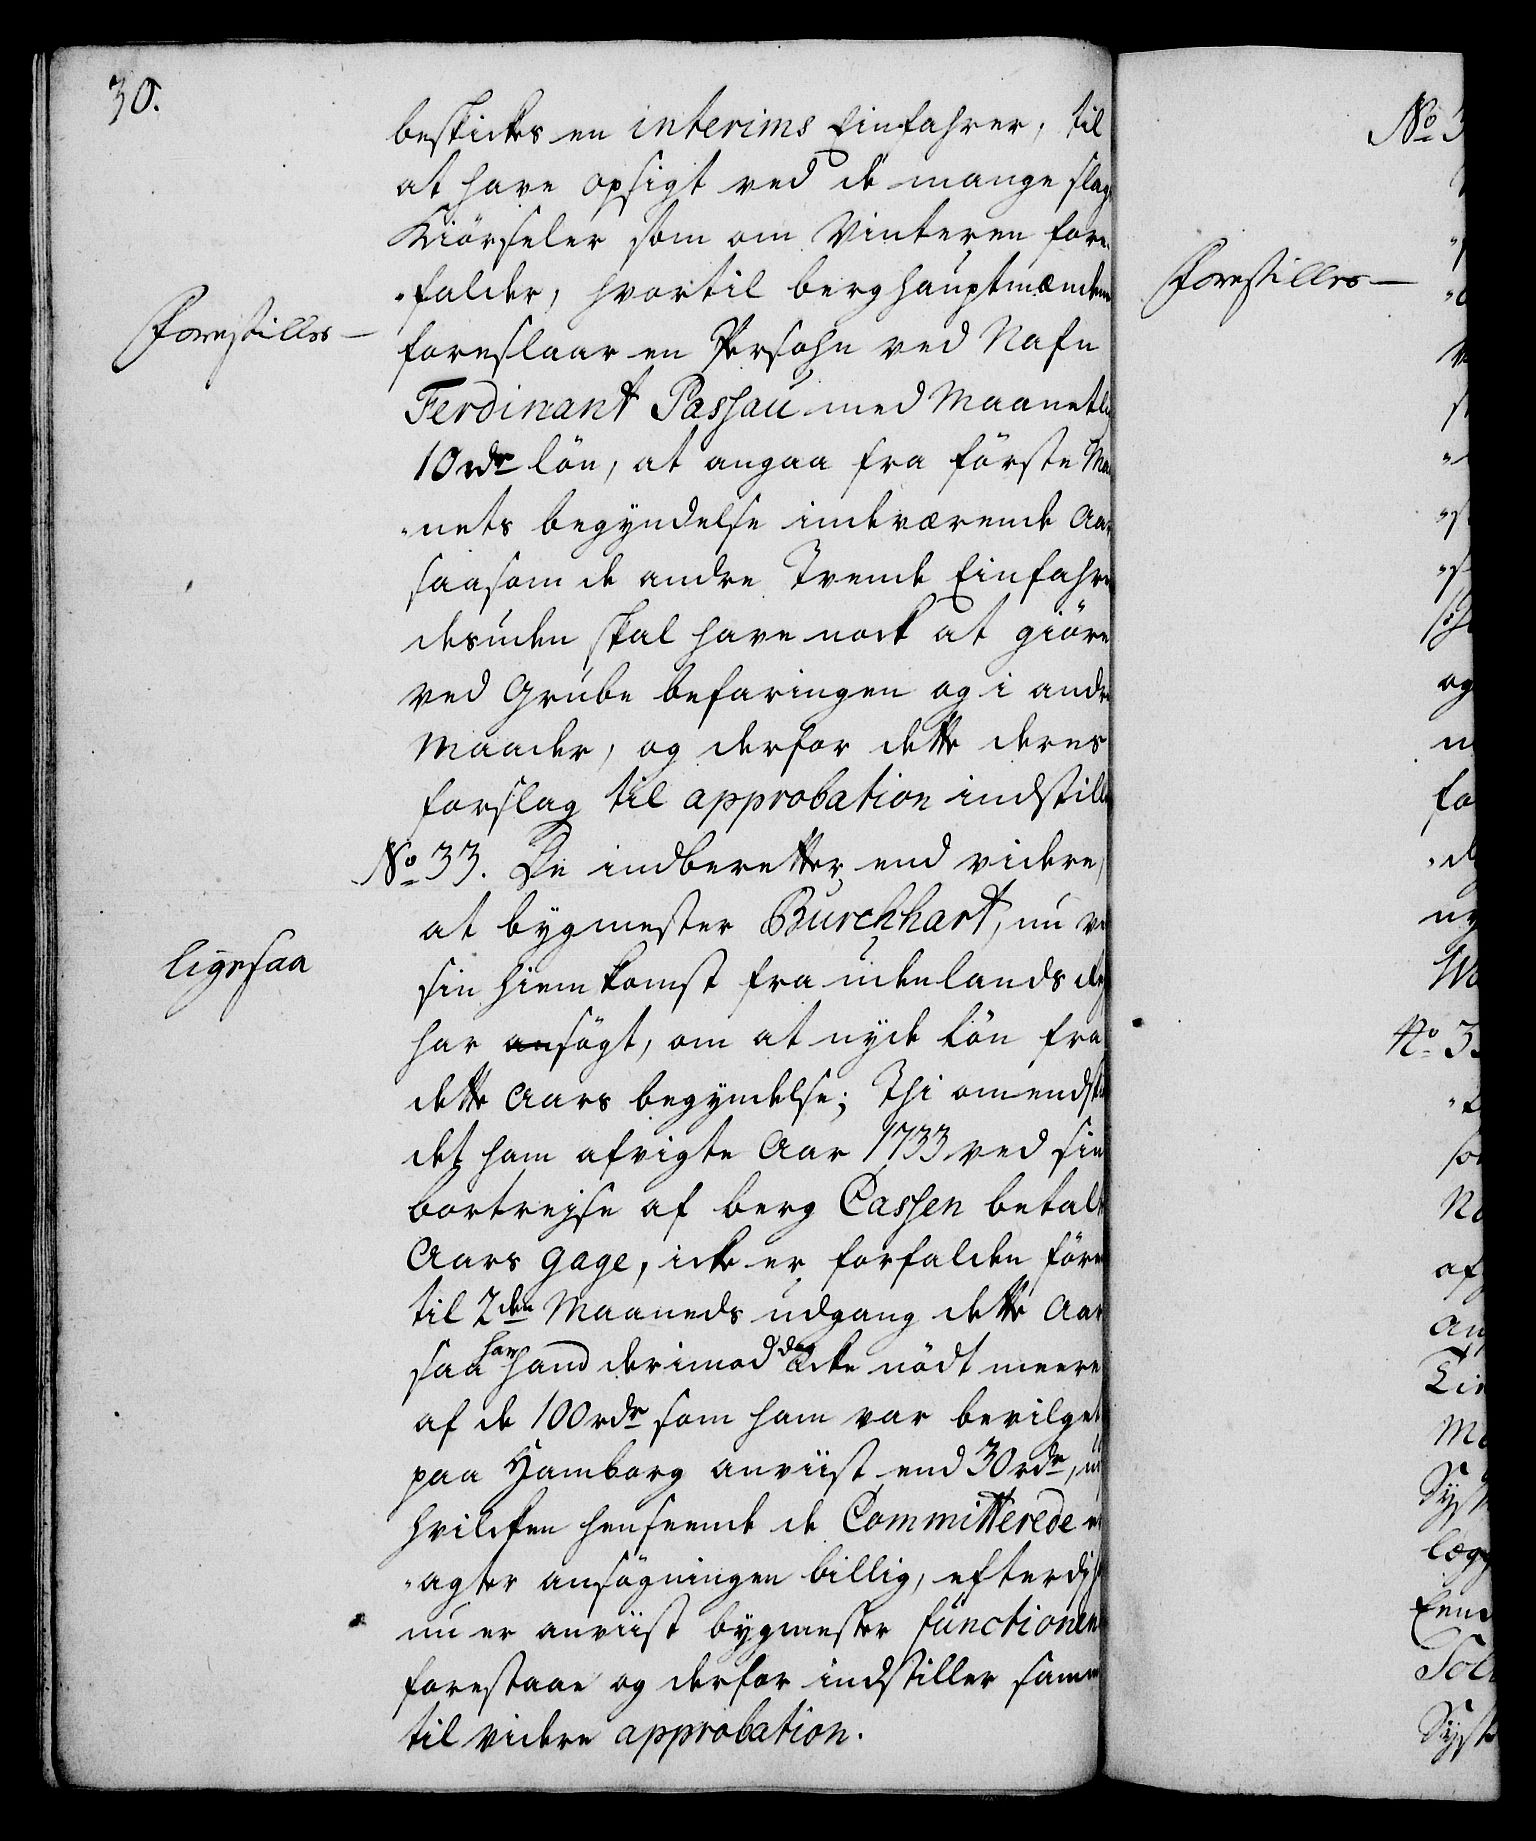 30.
beskickes en interims Einfahrer, til
at have opsigt ved de mange slags
Kiörseler som om Vinteren fore-
"falder, hvortil berghauptmændene
Forestilles —
foreslaar en Persohn ved Nafn
Ferdinant Passau med Maanetlig
10 rdr lön, at angaa fra förste Maa
"nets begyndelse indeværende Aar
saasom de andre Tvende Einfahrer
desuden skal have nock at giöre
ved Grube befaringen og i andre
Maader, og derfor dette deres
forslag til approbation indstilles
No 33. De indberetter end videre,
at bygmester Burchhart, nu ved
ligesaa
sin hiemkomst fra udenlands
har ansögt, om at nyde Lön fra
dette Aars begyndelse; Thi omendskiönt
det ham afvigte Aar 1733 ved sin
bortreyse af berg Cassen betalte
Aars gage, icke er forfalden förend
til 2den Maaneds udgang dette Aar
saa har hand derimod dog icke nödt meere
af de 100 rdr som ham var bevilget
paa Hamborg anviist end 30 rdr, udj
hvilcken henseende de Committerede er
"agter ansögningen billig, efterdj
nu er anviist bygmester functionen
forestaae og derfor indstiller samme
til videre approbation.
No 3
Forestilles —
og
fo
No 3
af